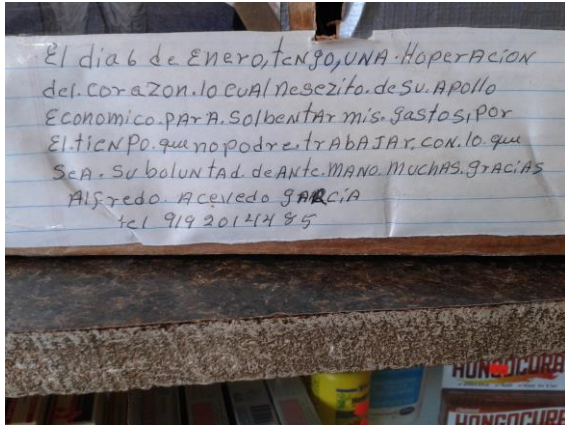 El dia 6 de Enero, tengo, UNA. HoperAcion
del. corazon. lo cuAl Nesezito. de Su. APollo
Economico. PArA. SolbeNtAr mis. gastos, Por
El. tieNPo. que no podre. trAbAJAr. CON. lo. que
SeA. Su boluNtAd. de ANte. MANO. MuchAS. grACiAS
Alfredo. Acevedo gARCiA
tel 919 201 44 85
HONGOCURA
HONGOCURA